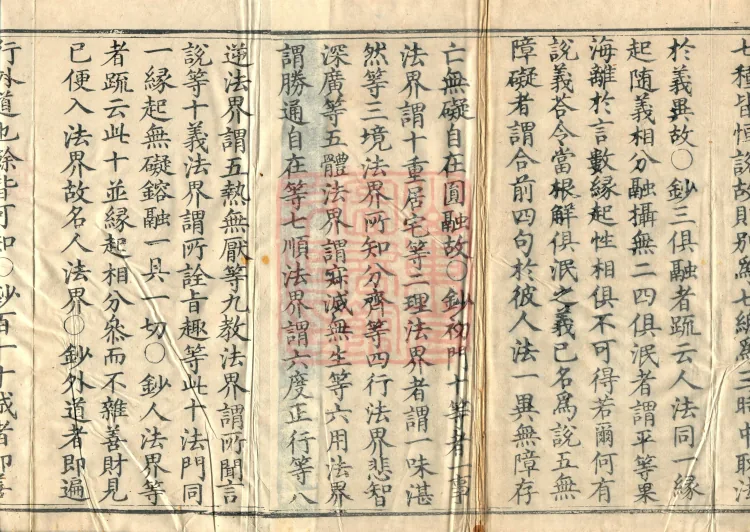 七種皆恒説故則別為七總為三時中
於義異故〇鈔三俱融者疏云人法同一緣
起随義相分融攝無二四俱泯者謂平等果
海離於言數緣起性相俱不可得若爾何有
説義荅今當根解俱泯之義已名爲説五無
障礙者謂合前四句於彼人法一異無障存
亡無礙自在圓融故〇鈔初門十等者一事
法界謂十重居宅等二理法界者謂一味湛
然等三境法界所知分齊等四行法界悲智
深廣等五體法界謂寂滅無生等六用法界
謂勝通自在等七順法界謂六度正行等八
逆法界謂五熱無厭等九教法界謂所聞言
説等十義法界謂所詮旨趣等此十法門同
一緣起無礙鎔融一具一切〇鈔人法界等
者疏云此十並緣起相分叅而不雜善財見
已便入法界故名人法界〇鈔外道者即遍
行外道也餘皆可知〇鈔百一十城者即善